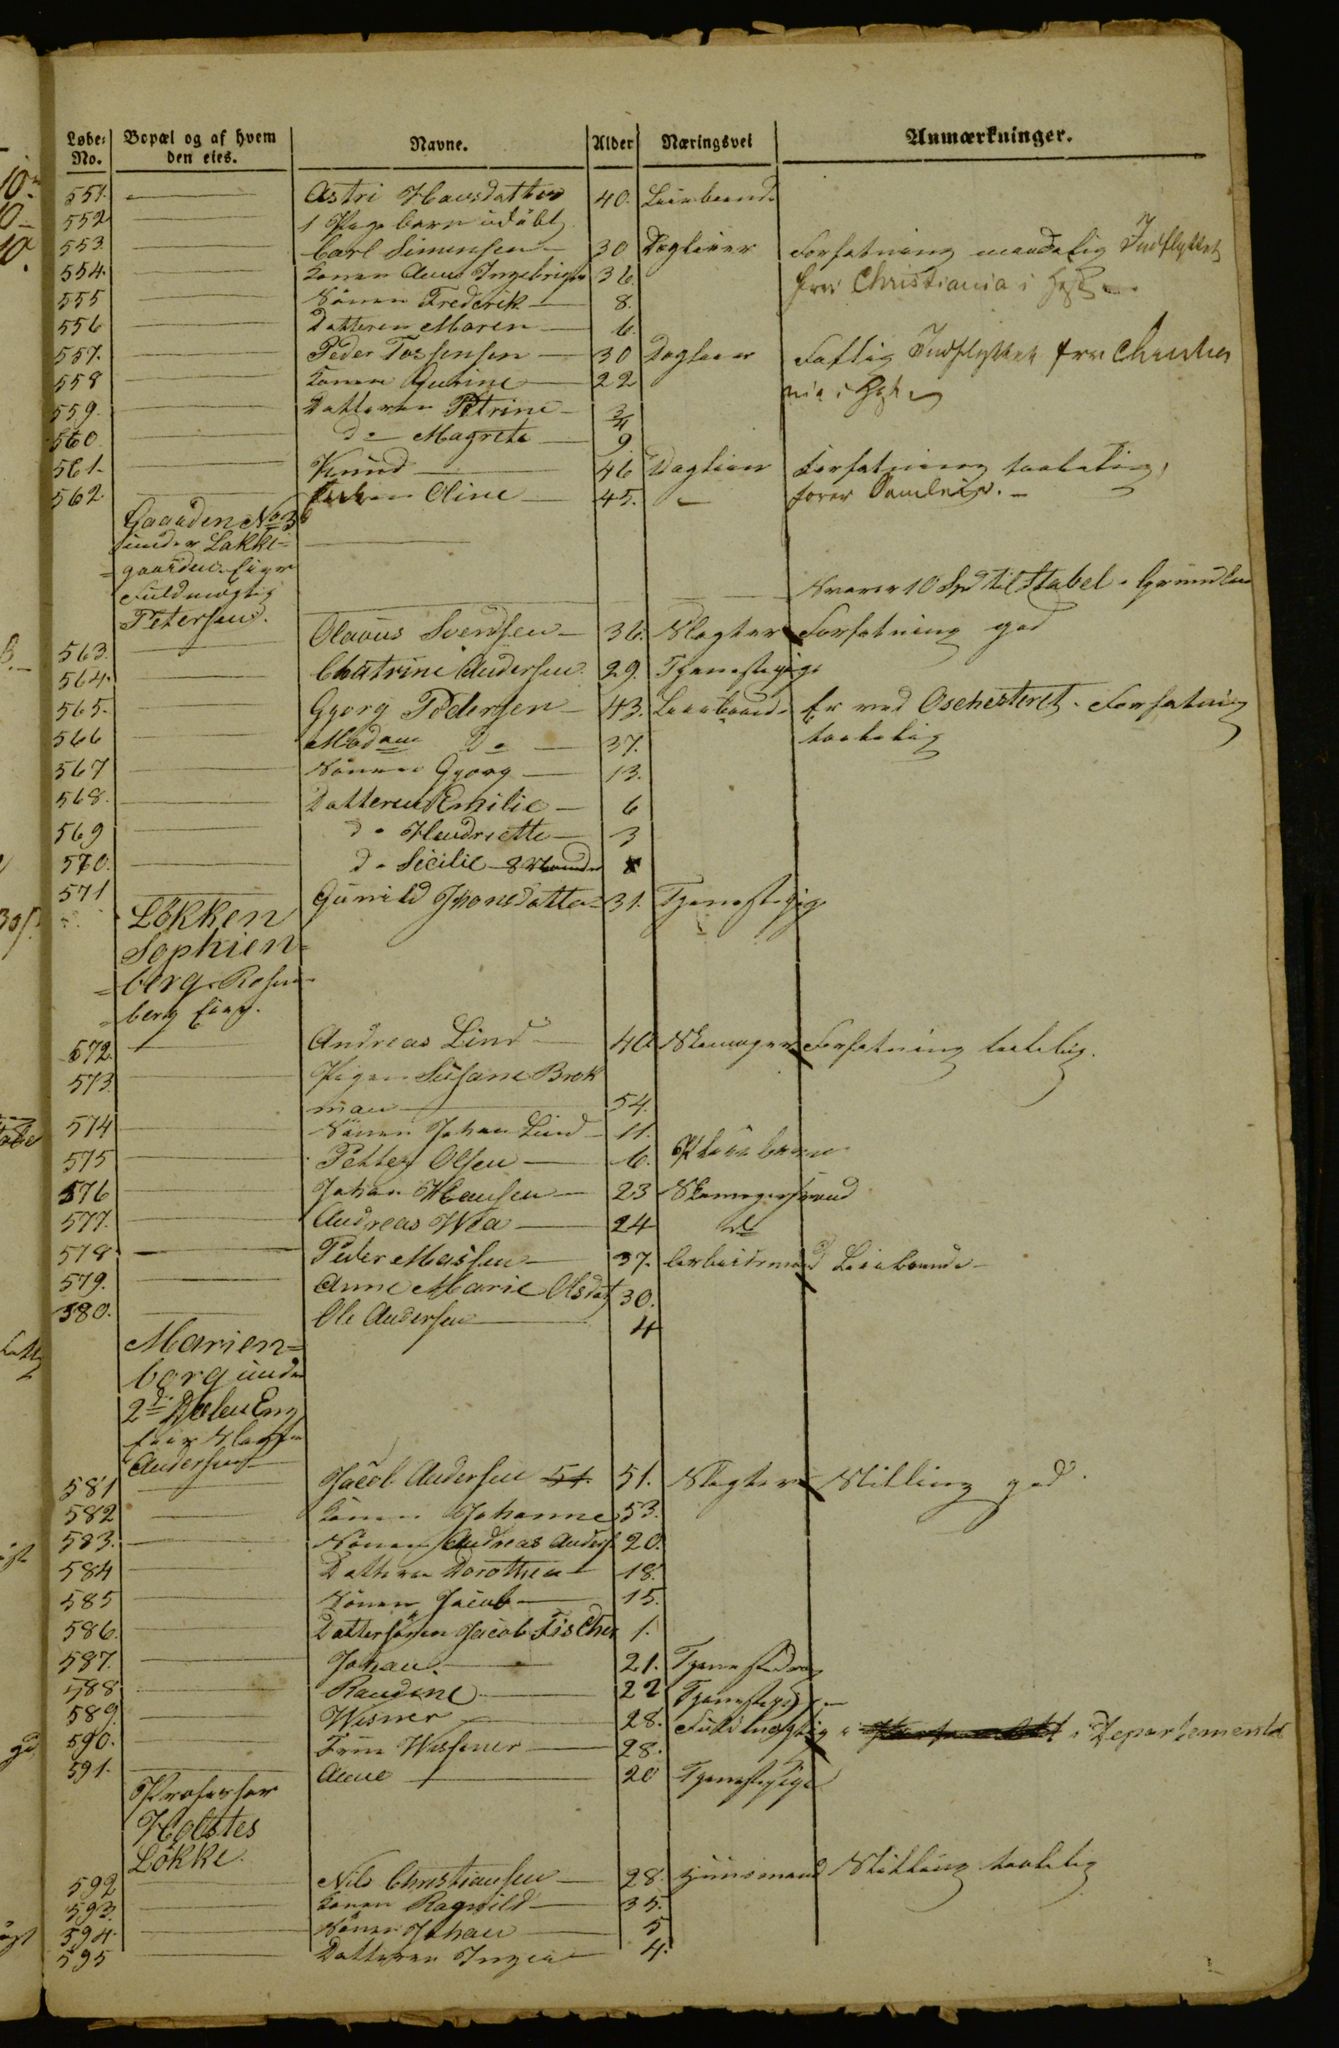 Løbe-No. Bopæl og af hvem den eies. Navne. Alder Næringsvei Anmærkninger.
551. Astri Hansdatter 40. Leieboende
552 1 Pigebarn udöbt
553 Carl Simensen 30 Dagleier Forfatning maadelig Indflyttet
554. Konen Anne Ingebrigts 36. fra Christiania i Höst
555 Sönnen Frederik 8.
556 Datteren Maren 6.
557. Peder Tossensen 30 Dagleier Fattig Indflyttet fra Christia
558 Konen Gurine 22 nia i Höst
559. Datteren Petrine 3/4
560 do Magrete 9
561. Knud 46 Dagleier Forfatning taalelig,
562 Konen Oline 45.
Gaarden No 3
under Lakke-
gaarden. Eier
Fuldmægtig Svarer 10 Spd til Stabel i Grundleie
Petersen.
563. Olavus Svendsen 36. Slagter Forfatning god
564. Chatrine Andersen 29. Tjenestepige
565. Gyorg Pedersen 43. Leieboende Er ved Orchesteret. Forfatning
566 Madam do 37. taalelig
567 Sönnen Gyorg 13.
568. Datteren Emilie 6
569 do Hendriette 3
570. do Sicilie 8 Maaneder
571 Gunild Jhonsdatter 31. Tjenestepige
Lökken
Sophien-
berg. Rosen-
berg Eier.
572. Andreas Lind 40. Skomager Forfatning taalelig.
573. Pigen Susane Brok
man 54.
574 Sönnen Johan Lind 11.
575 Petter Olsen 6. Pleiebarn
576 Johan Hansen 23 Skomagersvend
577. Andreas 24 do
578 Peder Massen 37. Arbeidsmand Leieboende
579. Anne Marie Olsdat 30.
580. Ole Andersen 4
Marien-
borg under
2de Eng
Eier Slagter
Andersen
581 Jacob Andersen 51. 51. Slagter Stilling god
582 Konen Johanne 53.
583. Sönnen Andreas Anders 20.
584 Datteren Dorothea 18.
585 Sönnen Jacob 15.
586. Dattersönnen Jacob Fischer 1.
587. Johan 21. Tjenestedreng
588 Randine 22 Tjenestepige
589. Wisner 28. Fuldmægtig i Departementet
590. Frue Wisner 28.
591. Anne 20 Tjenestepige
Professor
Holstes
Lökke.
592 Nils Christiansen 28. Huusmand Stilling taalelig
593. Konen Ragnild 35.
594. Sönnen Johan 5
595 Datteren Ingea 4.